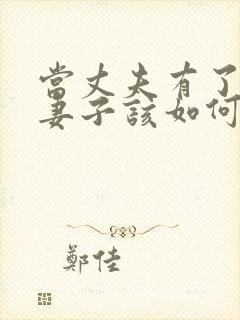 當丈夫有了
妻子該如何
鄭佳